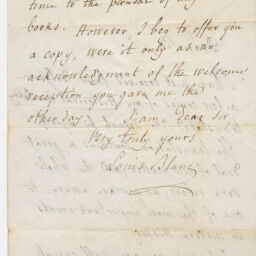 time to the perusal of my
books. However, I beg to offer you
a copy, were it only as an
acknowledgment of the welcome
reception you gave me the
other day. I am, dear Sir,
Very truly yours
Louis Blanc